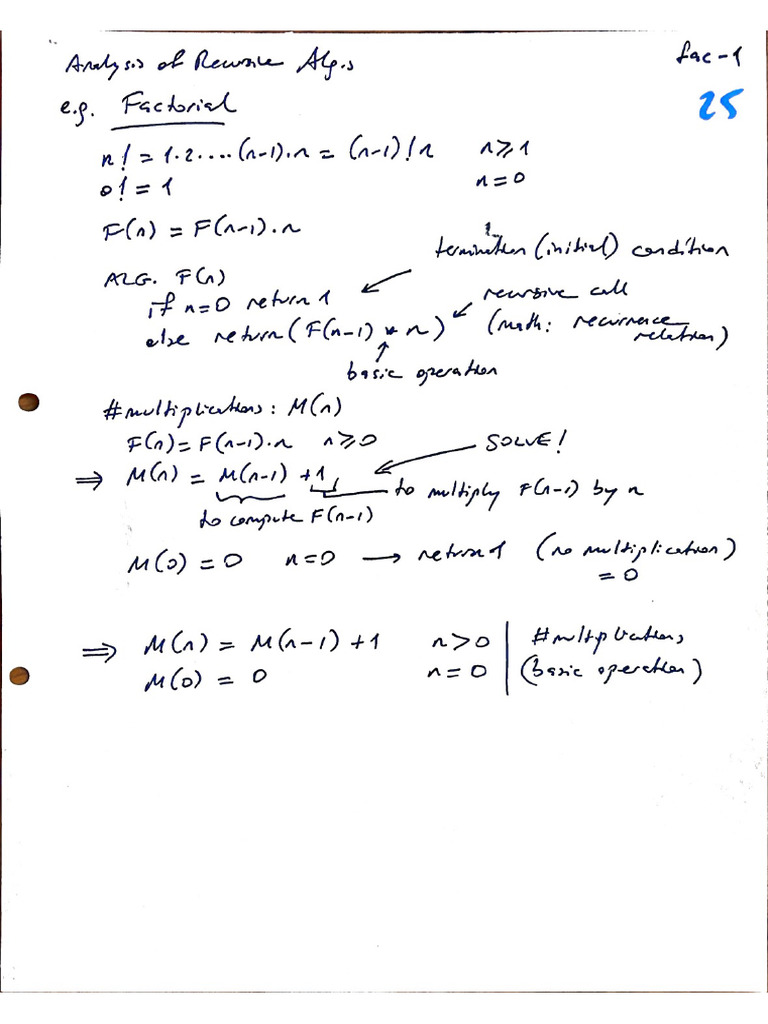 Analysis of Recursive Alg.s
fac-1
25
e.g. Factorial
n! = 1·2·...·(n-1)·n = (n-1)! n n≥1
0! = 1 n=0
F(n) = F(n-1)·n
termination (initial) condition
ALG. F(n)
if n=0 return 1
recursive call
else return (F(n-1) * n)
(math: recurrence
relation)
basic operation
#multiplications: M(n)
F(n) = F(n-1)·n n≥0
SOLVE!
⇒ M(n) = M(n-1) + 1
to multiply F(n-1) by n
to compute F(n-1)
M(0) = 0 n=0 → return 1 (no multiplication)
= 0
⇒ M(n) = M(n-1) + 1 n>0 | #multiplications
M(0) = 0 n=0 | (basic operation)